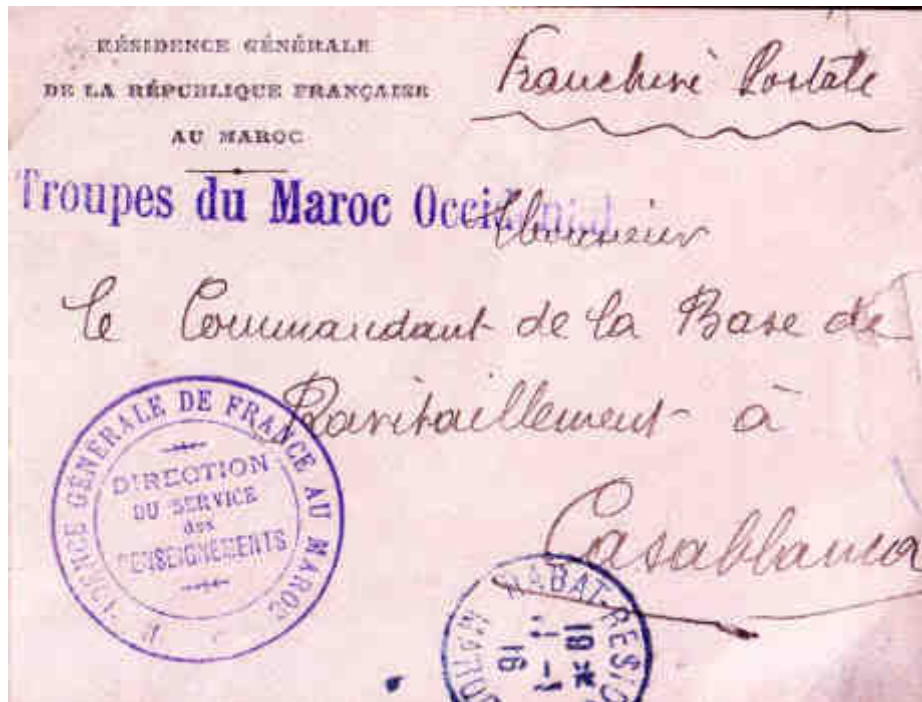 RÉSIDENCE GÉNÉRALE
DE LA RÉPUBLIQUE FRANÇAISE
AU MAROC
Franchise Postale
Troupes du Maroc Occidental
Monsieur
le Commandant de la Base de
Ravitaillement à
Casablanca
RÉSIDENCE GÉNÉRALE DE FRANCE AU MAROC
DIRECTION
DU SERVICE
des
RENSEIGNEMENTS
RABAT-RESID
MAROC
16